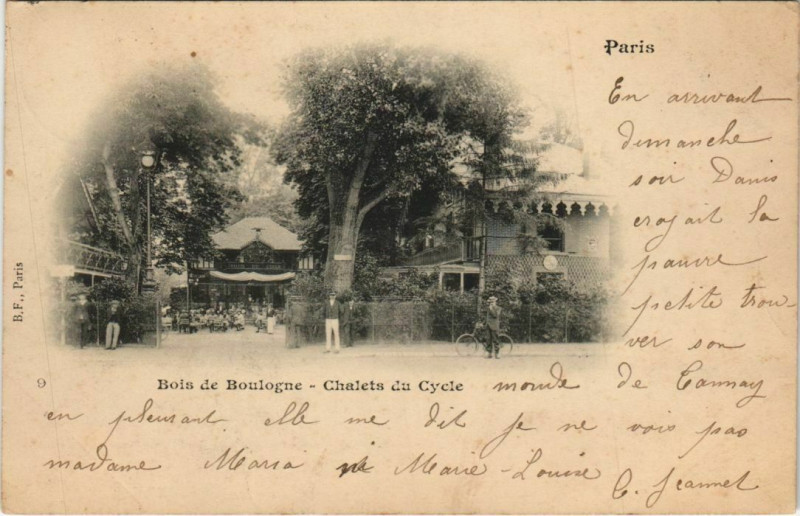 Paris
En arrivant
dimanche
soir Danis
croyait la
pauvre
petite trou-
ver son
B.F., Paris
9
Bois de Boulogne - Chalets du Cycle
monde de Cannay
en pleurant elle me dit je ne vois pas
madame Maria ni Marie-Louise
C. Jeannet